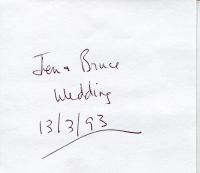 Jen & Bruce
Wedding
13/3/93